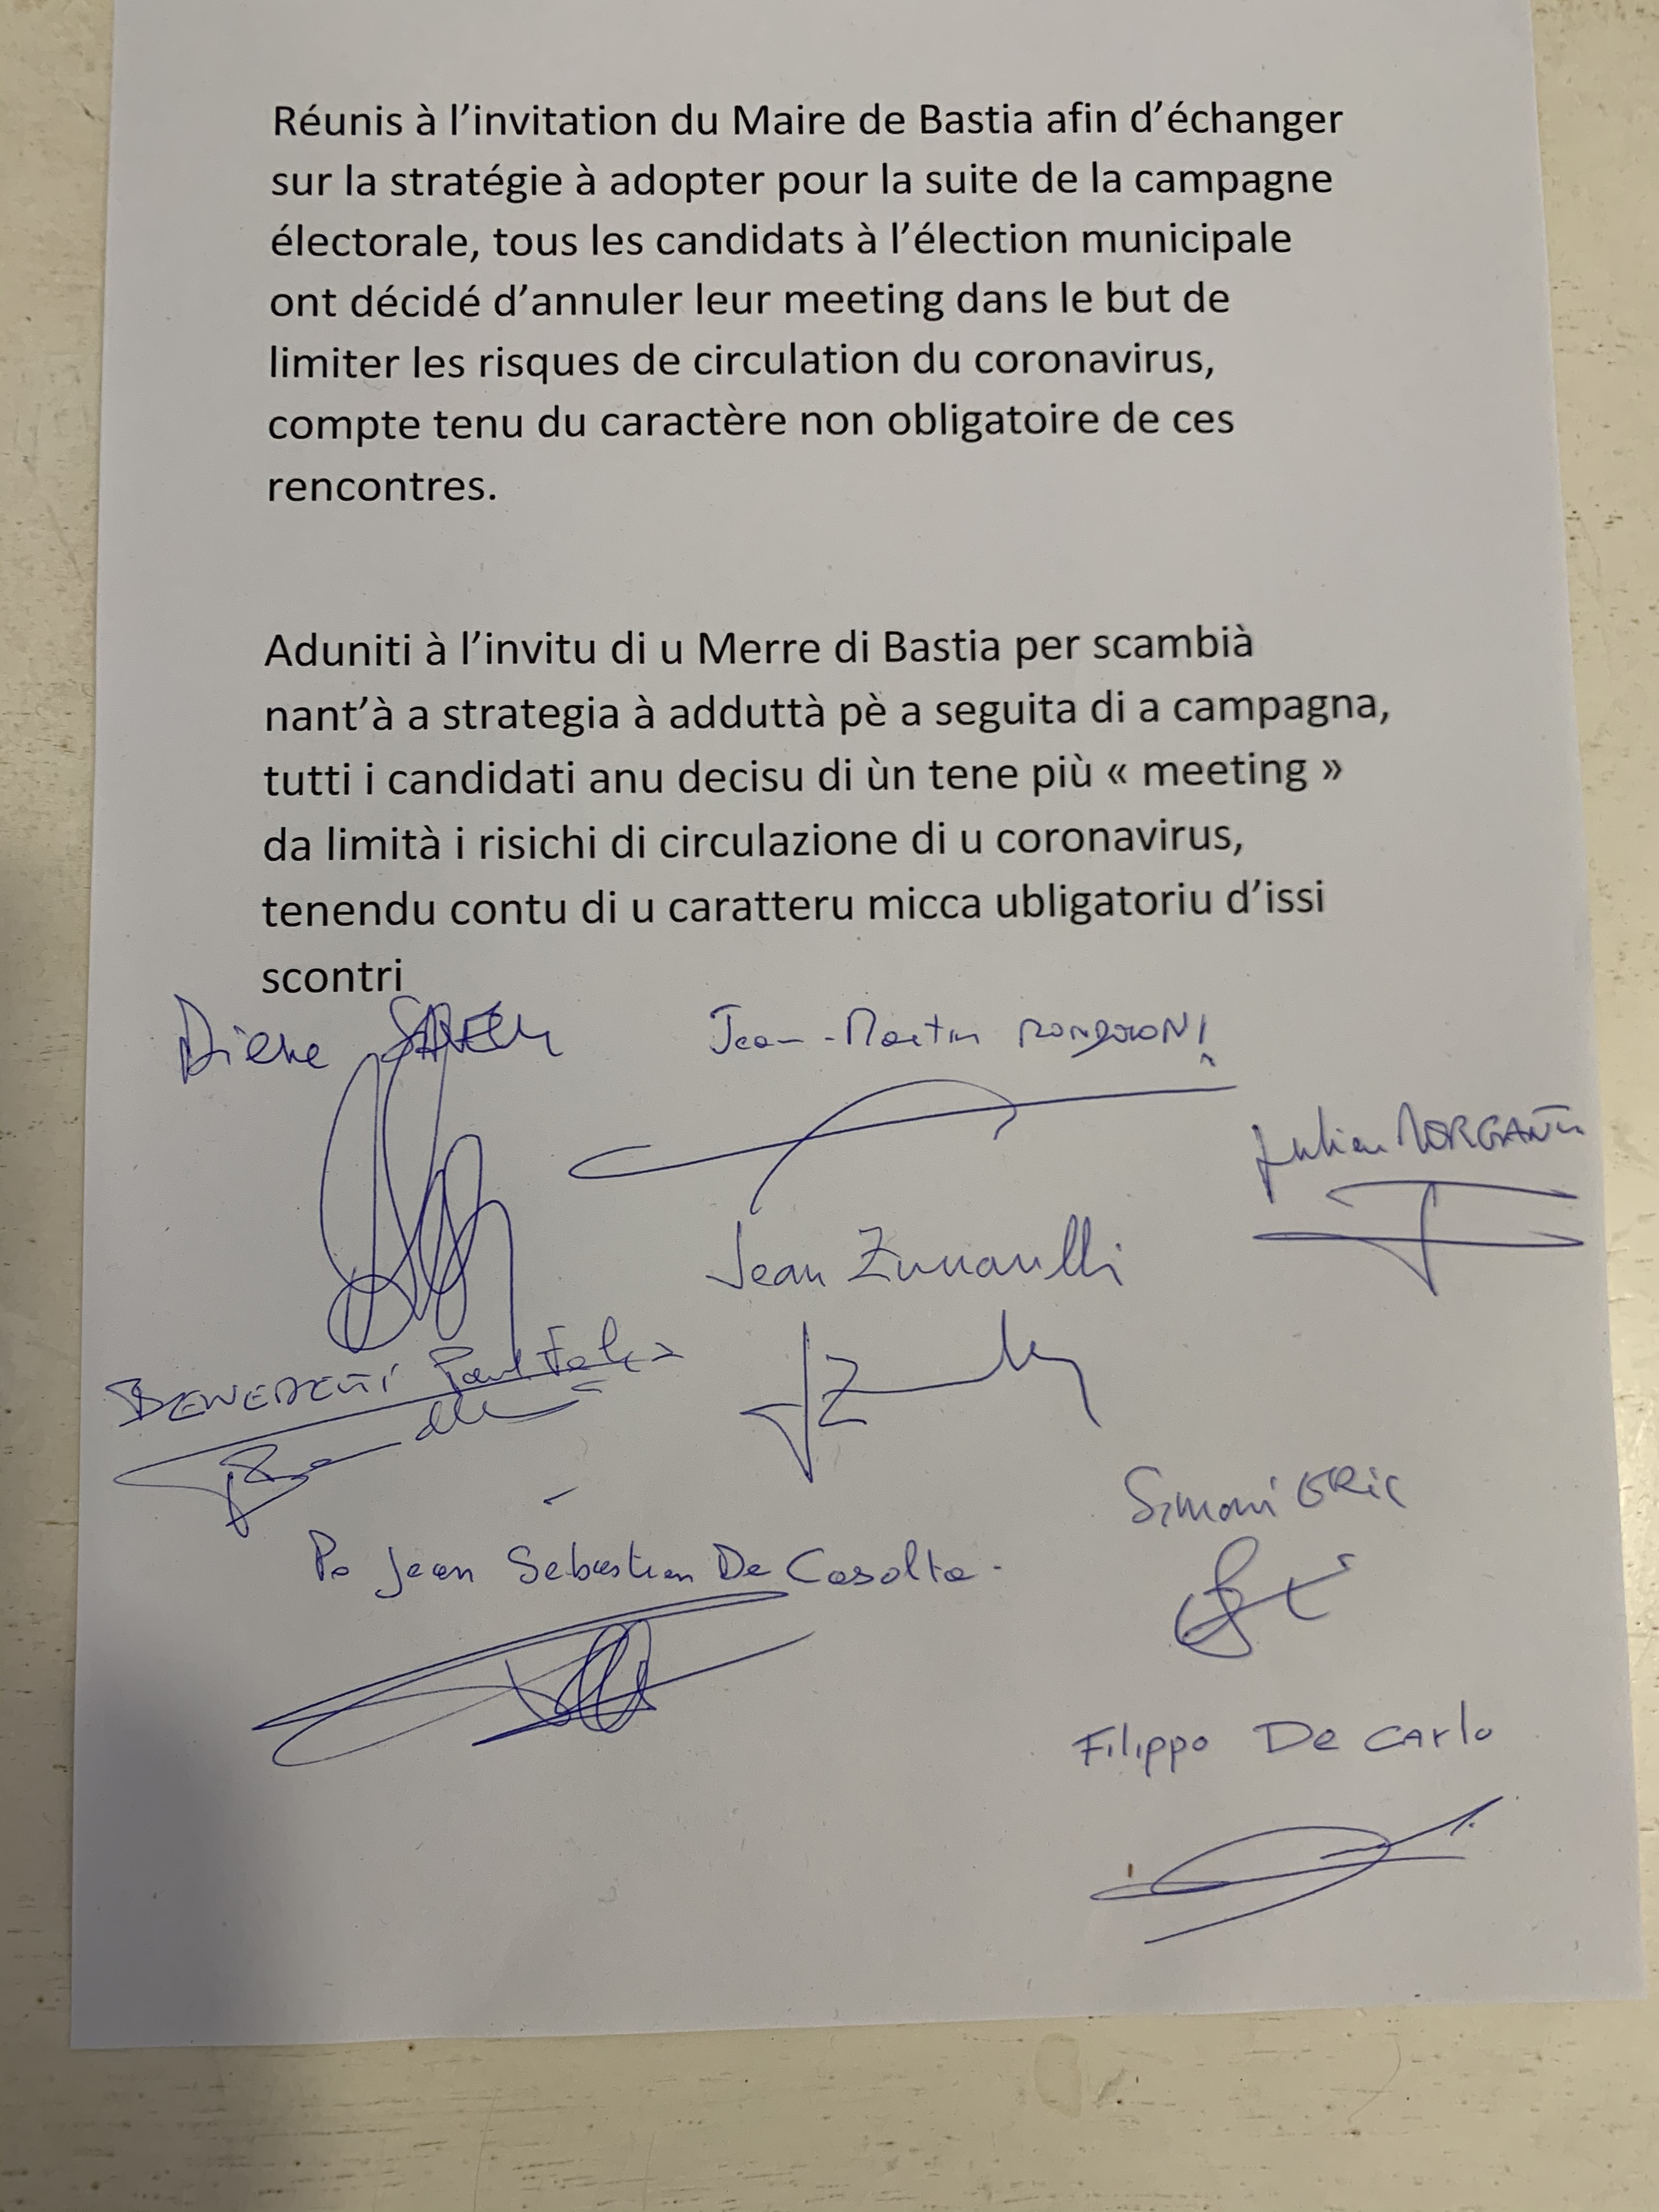 Réunis à l’invitation du Maire de Bastia afin d’échanger
sur la stratégie à adopter pour la suite de la campagne
électorale, tous les candidats à l’élection municipale
ont décidé d’annuler leur meeting dans le but de
limiter les risques de circulation du coronavirus,
compte tenu du caractère non obligatoire de ces
rencontres.
Aduniti à l’invitu di u Merre di Bastia per scambià
nant’à a strategia à adduttà pè a seguita di a campagna,
tutti i candidati anu decisu di ùn tene più « meeting »
da limità i risichi di circulazione di u coronavirus,
tenendu contu di u caratteru micca ubligatoriu d’issi
scontri
Jean-Martin MONDOLONI
Julien MORGANTI
Jean Zuccarelli
BENEDETTI Paul Felix
Simoni ERic
Po Jean Sebastien De Casalta -
Filippo De CArlo